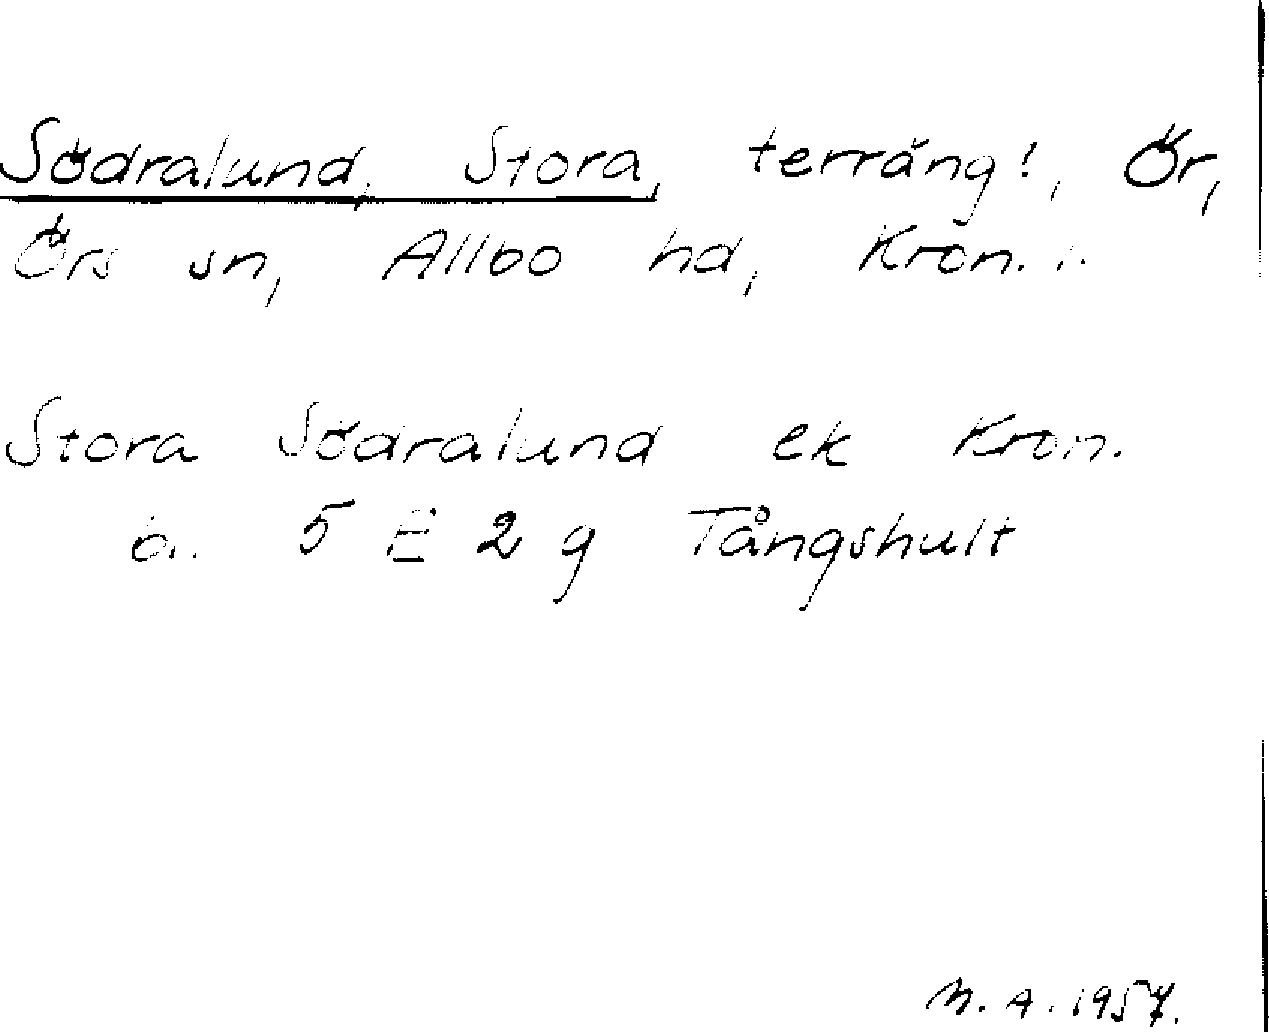 Södralund, Stora, terräng!, Ör,
Örs sn, Allbo hd, Kron. l.
Stora Södralund ek Kron.
b. 5 E 2 g Tångshult
M. A. 1957.